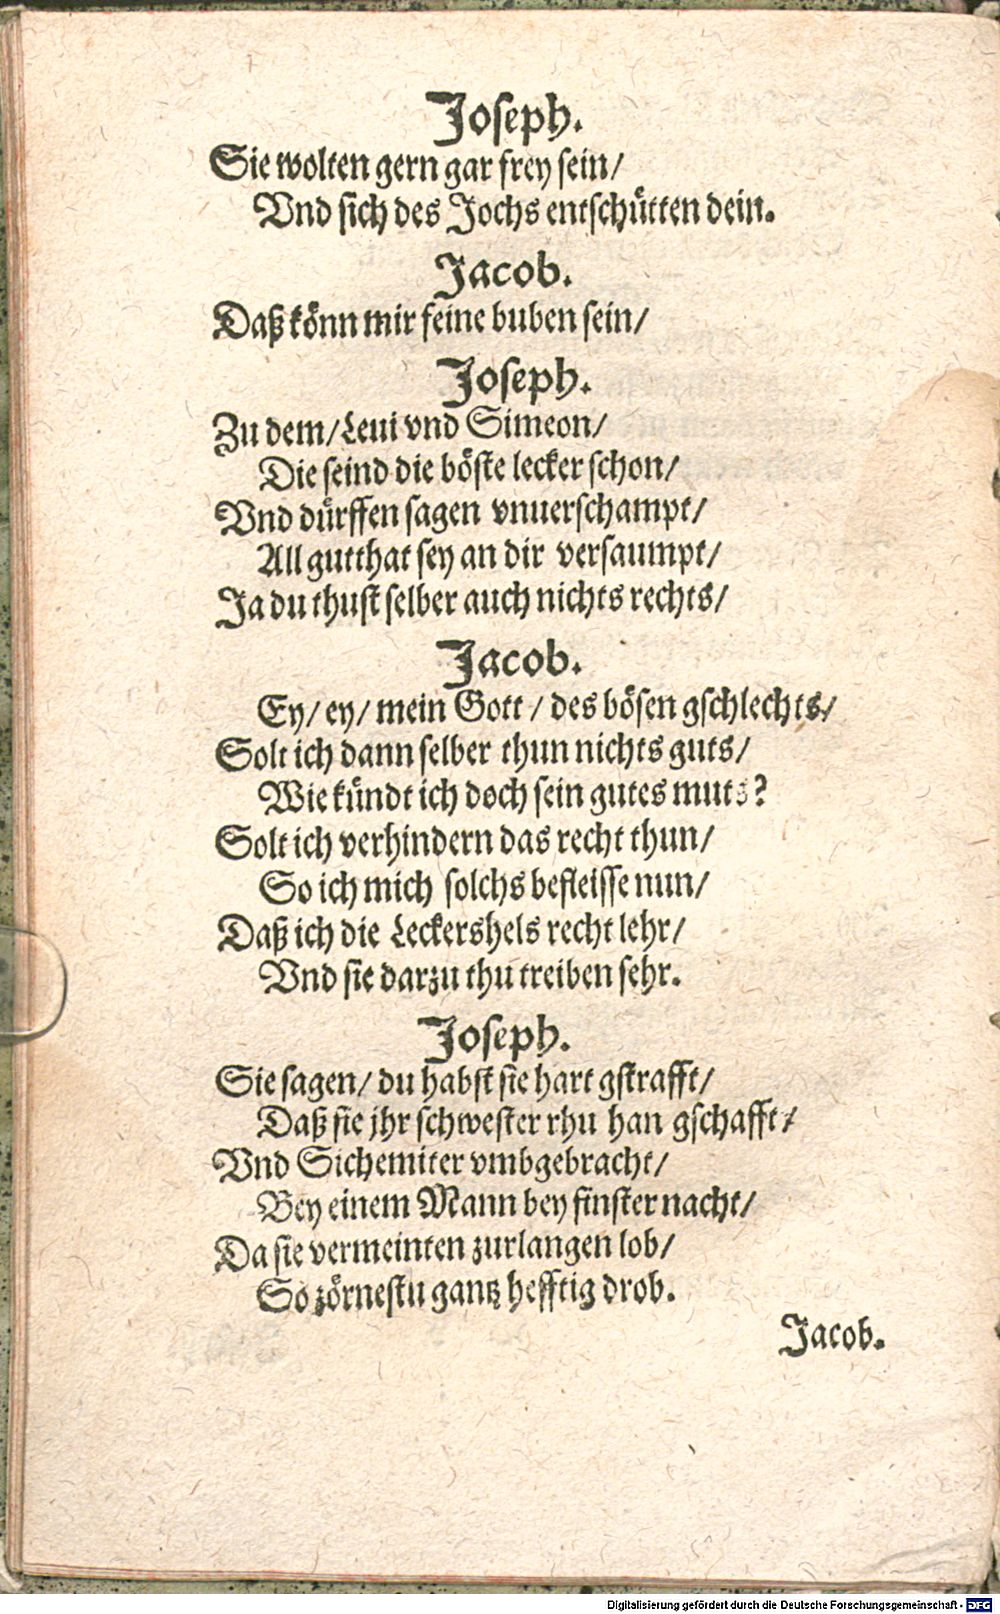 Joseph.
Sie wolten gern gar frey sein/
Vnd sich des Jochs entschütten dein.
Jacob.
Daß könn mir feine buben sein/
Joseph.
Zu dem/ Leui vnd Simeon/
Die seind die böste lecker schon/
Vnd dürffen sagen vnuerschampt/
All gutthat sey an dir versaumpt/
Ja du thust selber auch nichts rechts/
Jacob.
Ey/ ey/ mein Gott / des bösen gschlechts/
Solt ich dann selber thun nichts guts/
Wie kündt ich doch sein gutes muts?
Solt ich verhindern das recht thun/
So ich mich solchs befleisse nun/
Daß ich die Leckershels recht lehr/
Vnd sie darzu thu treiben sehr.
Joseph.
Sie sagen/ du habst sie hart gstrafft/
Daß sie jhr schwester rhu han gschafft/
Vnd Sichemiter vmbgebracht/
Bey einem Mann bey finster nacht/
Da sie vermeinten zurlangen lob/
So zörnestu gantz hefftig drob.
Jacob.
Digitalisierung gefördert durch die Deutsche Forschungsgemeinschaft - DFG